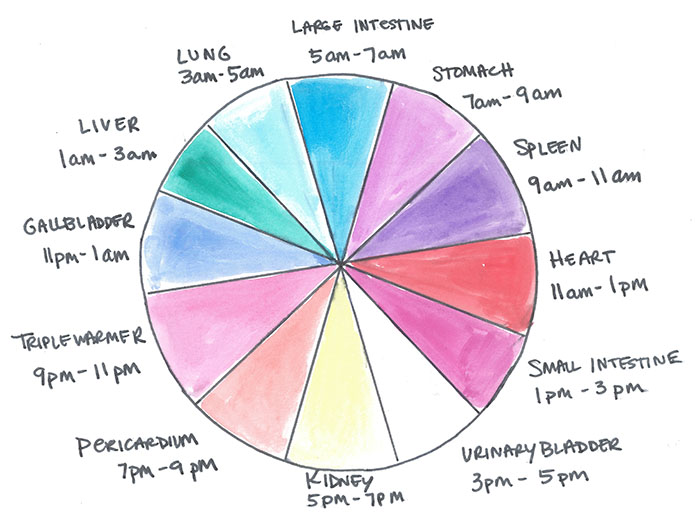 LARGE INTESTINE
5am-7am
STOMACH
7am-9am
SPLEEN
9am-11am
HEART
11am-1pm
SMALL INTESTINE
1pm-3pm
URINARY BLADDER
3pm-5pm
KIDNEY
5pm-7pm
PERICARDIUM
7pm-9pm
TRIPLEWARMER
9pm-11pm
GALLBLADDER
11pm-1am
LIVER
1am-3am
LUNG
3am-5am